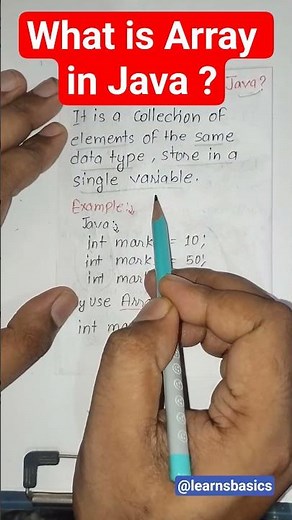 What is Array
in Java ?
Java?
It is a collection of
elements of the same
data type, store in a
single variable.
Example:
Java:
int mark = 10;
int mark = 50;
int mark
y use Arra
int ma
@learnsbasics